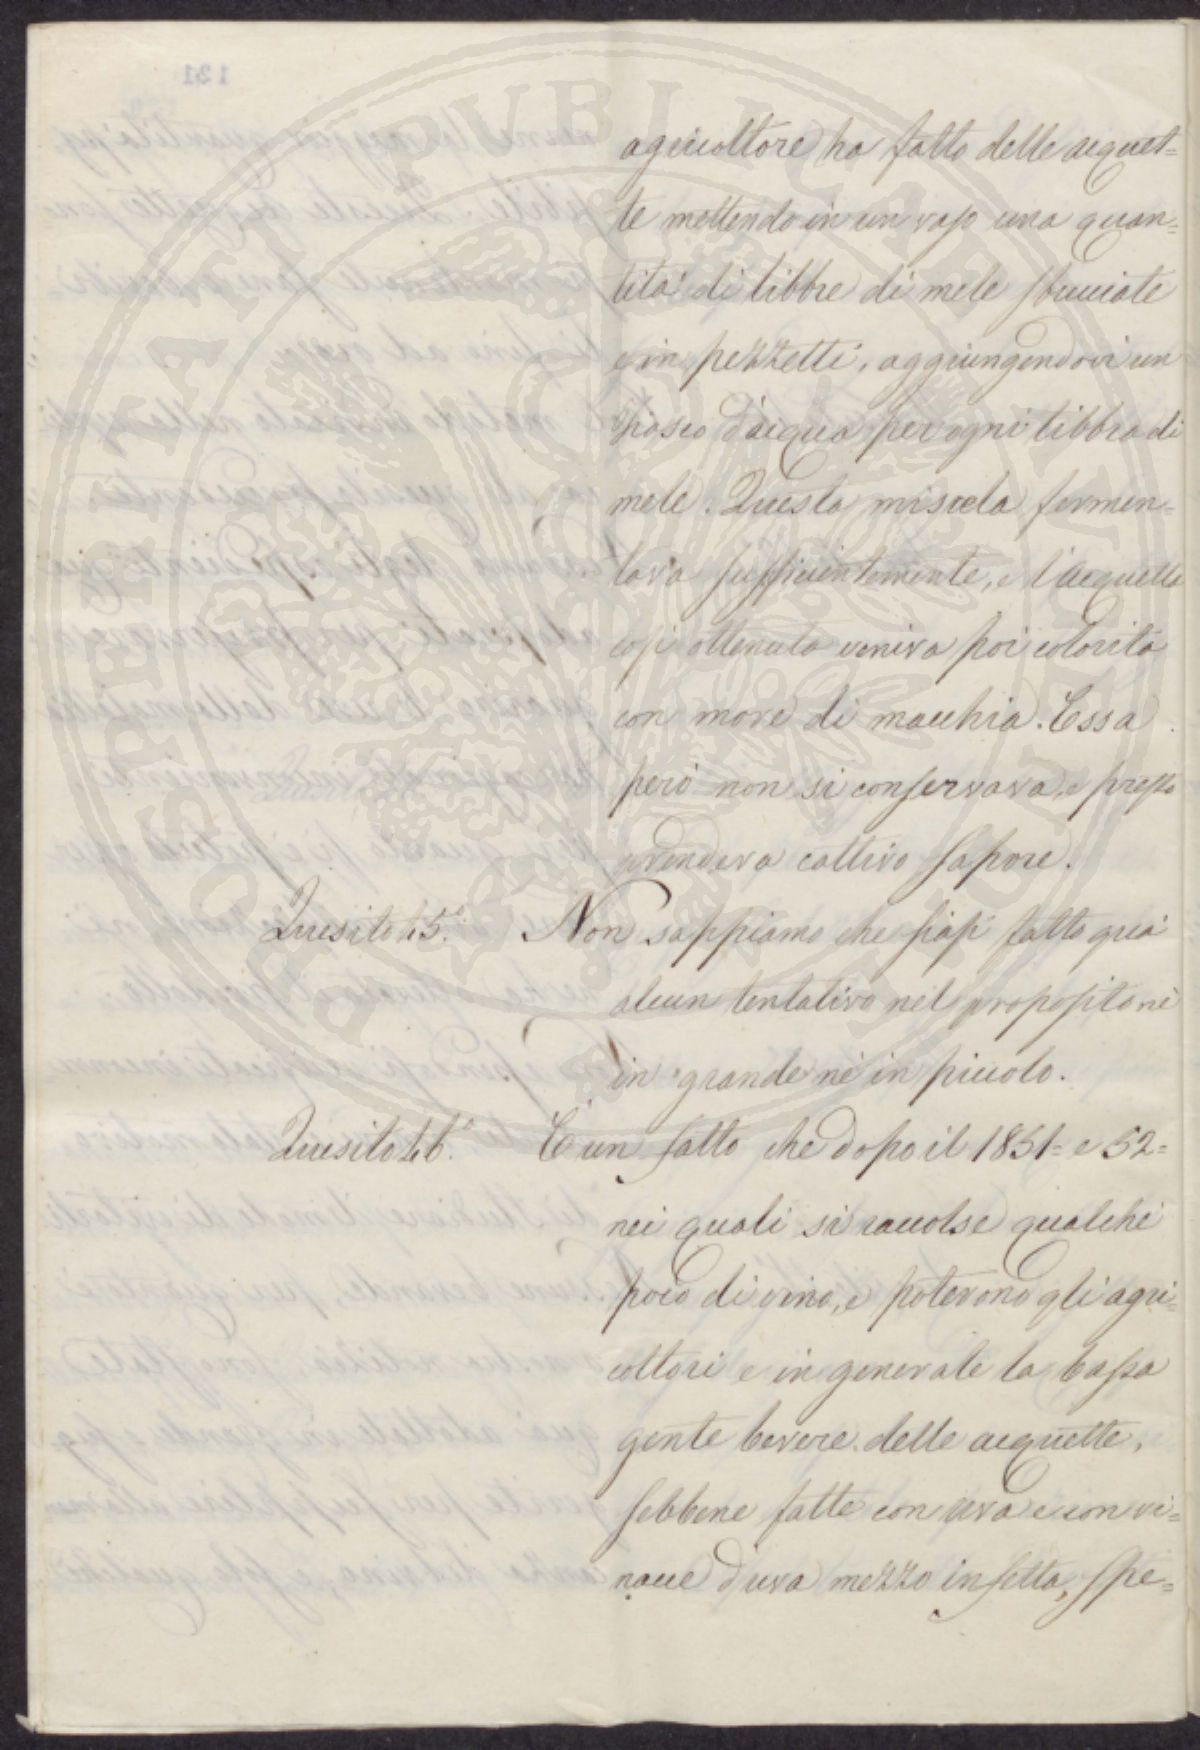 agricoltore ha fatto delle acquet=
te mettendo in un vaso una quan=
tità di libbre di mele sbucciate
e in pezzetti, aggiungendovi un
fiasco d'acqua per ogni libbra di
mele. Questa miscela fermen=
tava sufficientemente, e l'acquetta
così ottenuta veniva poi colorita
con more di macchia. Essa
però non si conservava, e presto
prendeva cattivo sapore.
Quesito 45.° Non sappiamo che siasi fatto quà
alcun tentativo nel proposito nè
in grande nè in piccolo.
Quesito 46.° È un fatto che dopo il 1851= e 52=
nei quali si raccolse qualche
poco di vino, e poterono gli agri=
coltori e in generale la bassa
gente bevere delle acquette,
sebbene fatte con uva e con vi=
nacce d'uva mezzo infetta, spe=
PRIVATI PUBLICAE PROSPERITATI